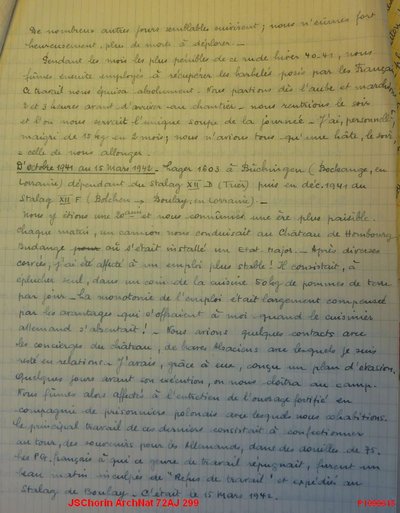 De nombreux autres jours semblables suivirent ; nous n'eûmes fort
heureusement, plus de morts à déplorer —
Pendant les mois les plus pénibles de ce rude hiver 40-41, nous
fûmes ensuite employés à récupérer les barbelés posés par les Français
Ce travail nous épuisa absolument. Nous partions dès l'aube et marchions
2 et 3 heures avant d'arriver au chantier — nous rentrions le soir
et l'on nous servait l'unique soupe de la journée — J'ai, personnellement
maigri de 15 kgs en 2 mois ; nous n'avions tous qu'une hâte, le soir,
: celle de nous allonger.
D'octobre 1941 au 15 mars 1942 — Lager 1603 à Büchingen (Bockange, en
Lorraine) dépendant du Stalag XII D (Trier) puis en déc. 1941 au
Stalag XII F (Bolchen → Boulay, en Lorraine) —
Nous y étions une 20aine et nous connûmes une ère plus paisible.
Chaque matin, un camion nous conduisait au Château de Hombourg
Budange où s'était installé un Etat Major — Après diverses
corvées, j'ai été affecté à un emploi plus stable ! Il consistait, à
éplucher seul, dans un coin de la cuisine 50 kg de pommes de terre
par jour — La monotonie de l'emploi était largement compensée
par les avantages qui s'offraient à moi quand le cuisinier
allemand s'absentait ! — Nous avions quelques contacts avec
les concierges du château, de braves Alsaciens avec lesquels je suis
resté en relations — J'avais, grâce à eux, conçu un plan d'évasion.
Quelques jours avant son exécution, on nous cloîtra au camp.
Nous fûmes alors affectés à l'entretien de l'ouvrage fortifié en
compagnie de prisonniers polonais avec lesquels nous cohabitions.
Le principal travail de ces derniers consistait à confectionner
au tour, des souvenirs pour les Allemands, dans des douilles de 75.
Les P.G. français à qui ce genre de travail répugnait, furent un
beau matin inculpés de "Refus de travail" et expédiés au
Stalag de Boulay — C'était le 15 Mars 1942.
JSChorin ArchNat 72AJ 299